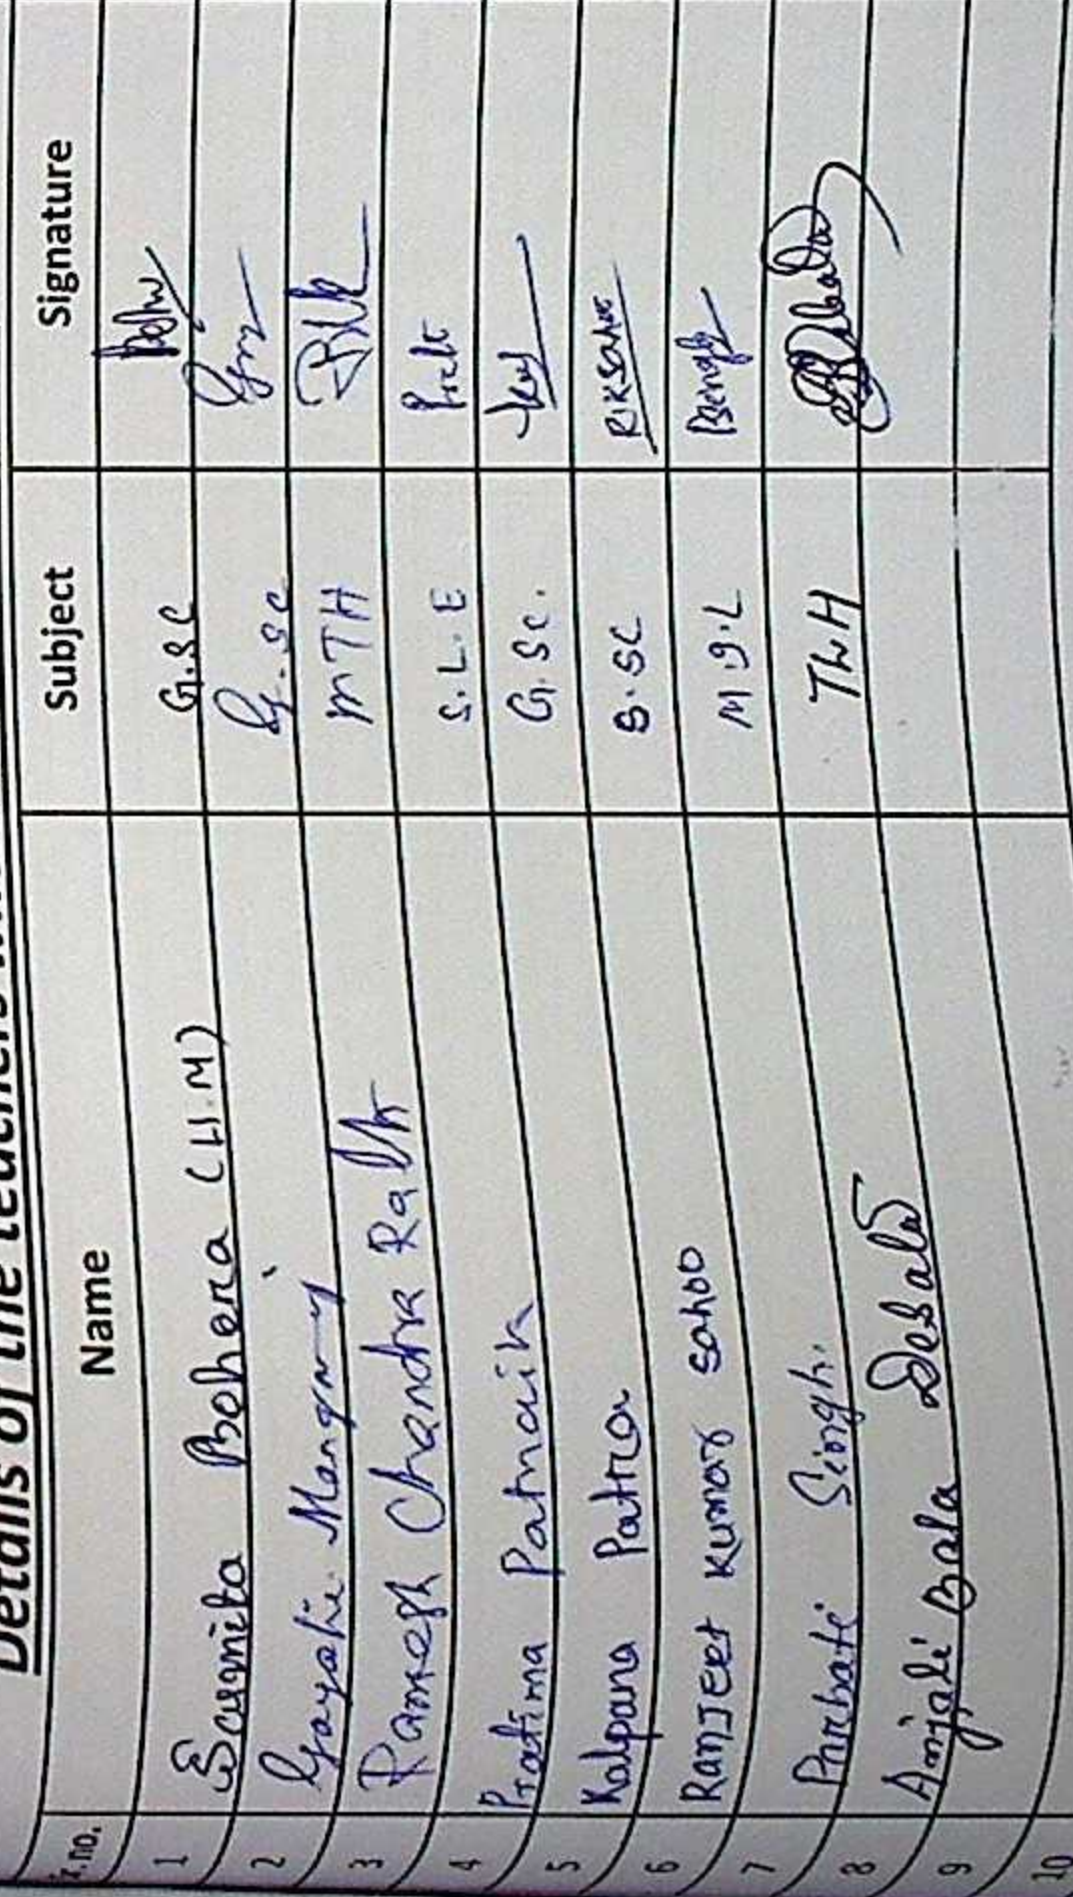 Details of the teachers
Sr.no. Name Subject Signature
1 Behera (H.M) G.SC
2 Gayatri G.SC
3 Ramesh Chandra MTH
4 Pratima Patnaik S.L.E
5 Kalpana Patra G.SC.
6 RANJEET KUMAR SAHOO B.SC R.K.Sahoo
7 Parbati Singh. M.I.L
8 Anjali Bala TLH
9
10